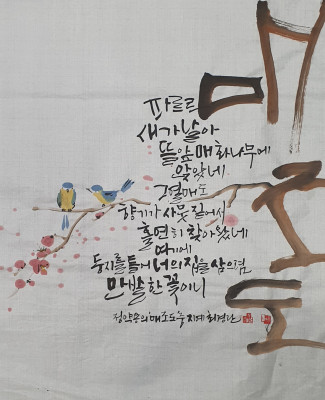 파르르
새가 날아
뜰앞 매화나무에
앉았네
그 열매도
향기가 사뭇 짙어서
홀연히 찾아왔네
여기에
둥지를 틀어 너의 집을 삼으렴
만발한 꽃이니
정약용의 매조도 중